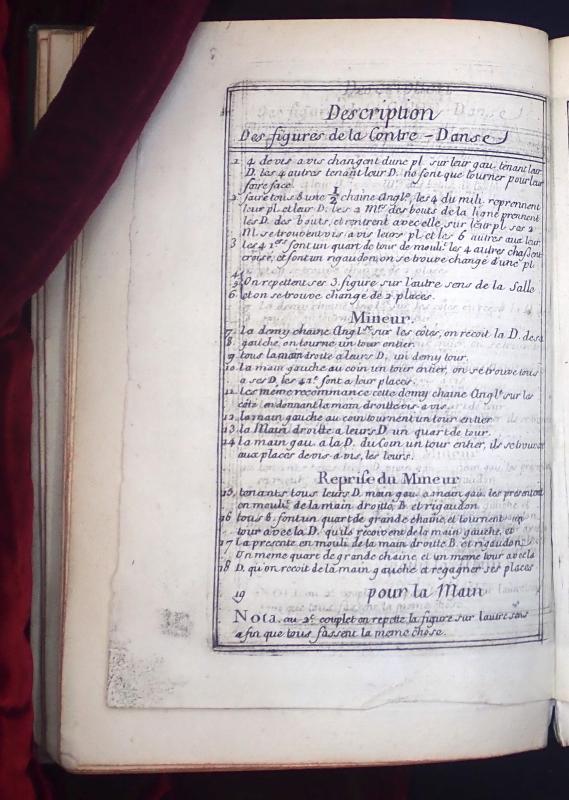 Description
Des figures de la Contre-Danse
1 4 de vis a vis changent dune pl. sur leur gau. tenant leur
D. les 4 autres tenant leur D. ne font que tourner pour leur
faire face
2 faire tous 8 une ½ chaine Angle. les 4 du mili. reprennent
leur pl. et leur D. les 2 Mrs des bouts de la ligne prennent
les D. des bouts, et rentrent avec elle, sur leur pl. ses 2
M. se trouvent vis a vis leurs pl. et les 6 autres aux leur
3 les 4 1ers font un quart de tour de mouli. les 4 autres chassent
croisé, et font un rigaudon, on se trouve changé d'une pl.
4
5 On repettent ses 3. figure sur l'autre sens de la Salle
6 et on se trouve changé de 2 places.
Mineur.
7. La demy chaine Anglse sur les côtés, on recoit la D. de sa
8 gauche, on tourne un tour entier.
9 tous la main droite a leurs D. un demy tour.
10. La main gauche au coin un tour entier, on se trouve tous
a ses D. les 4 1es font a leur places
11 Les même recommance cette demy chaine Angle sur les
côté en donnant la main droitte vis a vis.
12. la main gauche au coin tournent un tour entier
13. la Main droitte a leurs D. un quart de tour.
14 La main gau. a la D. du Coin un tour entier, ils se trouvent
aux places de vis a vis, les leurs.
Reprise du Mineur
15, tenants tous leurs D. main gau. a main gau. les presentent
en mouli. de la main droitte, B. et rigaudon.
16 tous 8. font un quart de grande chaine, et tournent un
tour avec la D. qu'ils recoivent de la main gauche, et
17 la presente en mouli. de la main droitte B. et rigaudon.
Un meme quart de grande chaine, et un meme tour avec la
18 D. qu'on recoit de la main gauche a regagner ses places
19 pour la Main
Nota. au 2e. couplet on repette la figure sur l'autre sens
afin que tous fassent la meme chose.